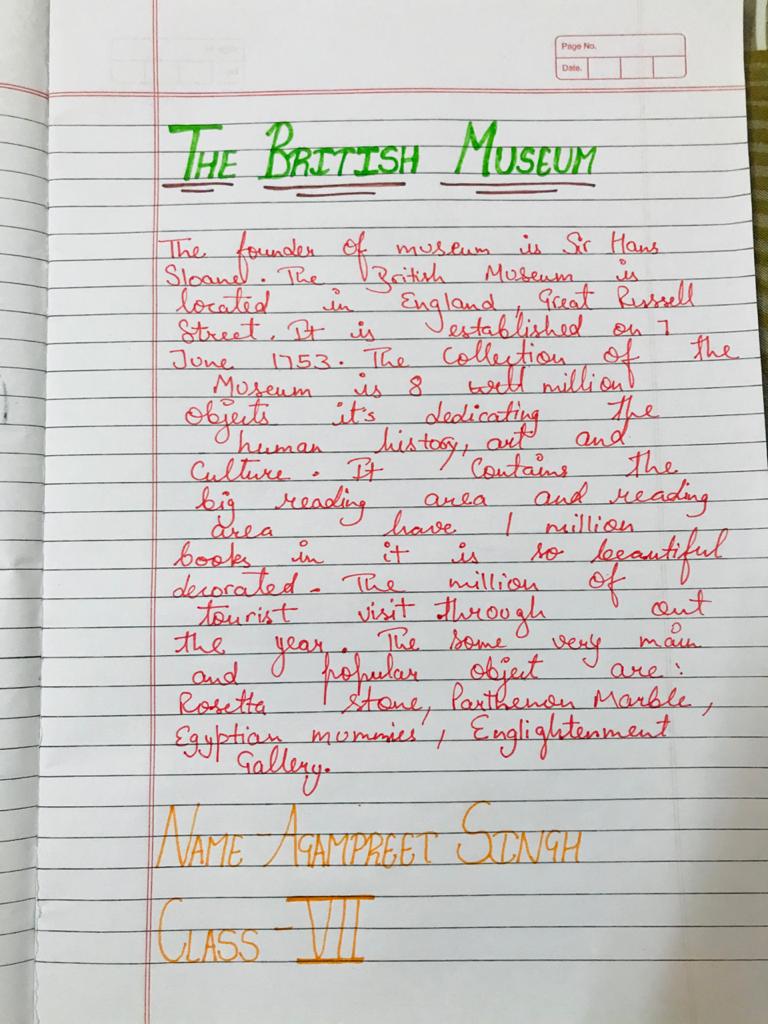 Page No.
Date.
THE BRITISH MUSEUM
The founder of museum is Sir Hans
Sloane. The British Museum is
located in England, Great Russell
Street. It is established on 7
June 1753. The Collection of the
Museum is 8 well million
objects it's dedicating the
human history, art and
Culture. It Contains the
big reading area and reading
area have 1 million
books in it is so beautiful
decorated. The million of
tourist visit through out
the year. The some very main
and popular object are:
Rosetta stone, Parthenon Marble,
Egyptian mummies, Englightenment
Gallery.
NAME - AGAMPREET SINGH
CLASS - VII